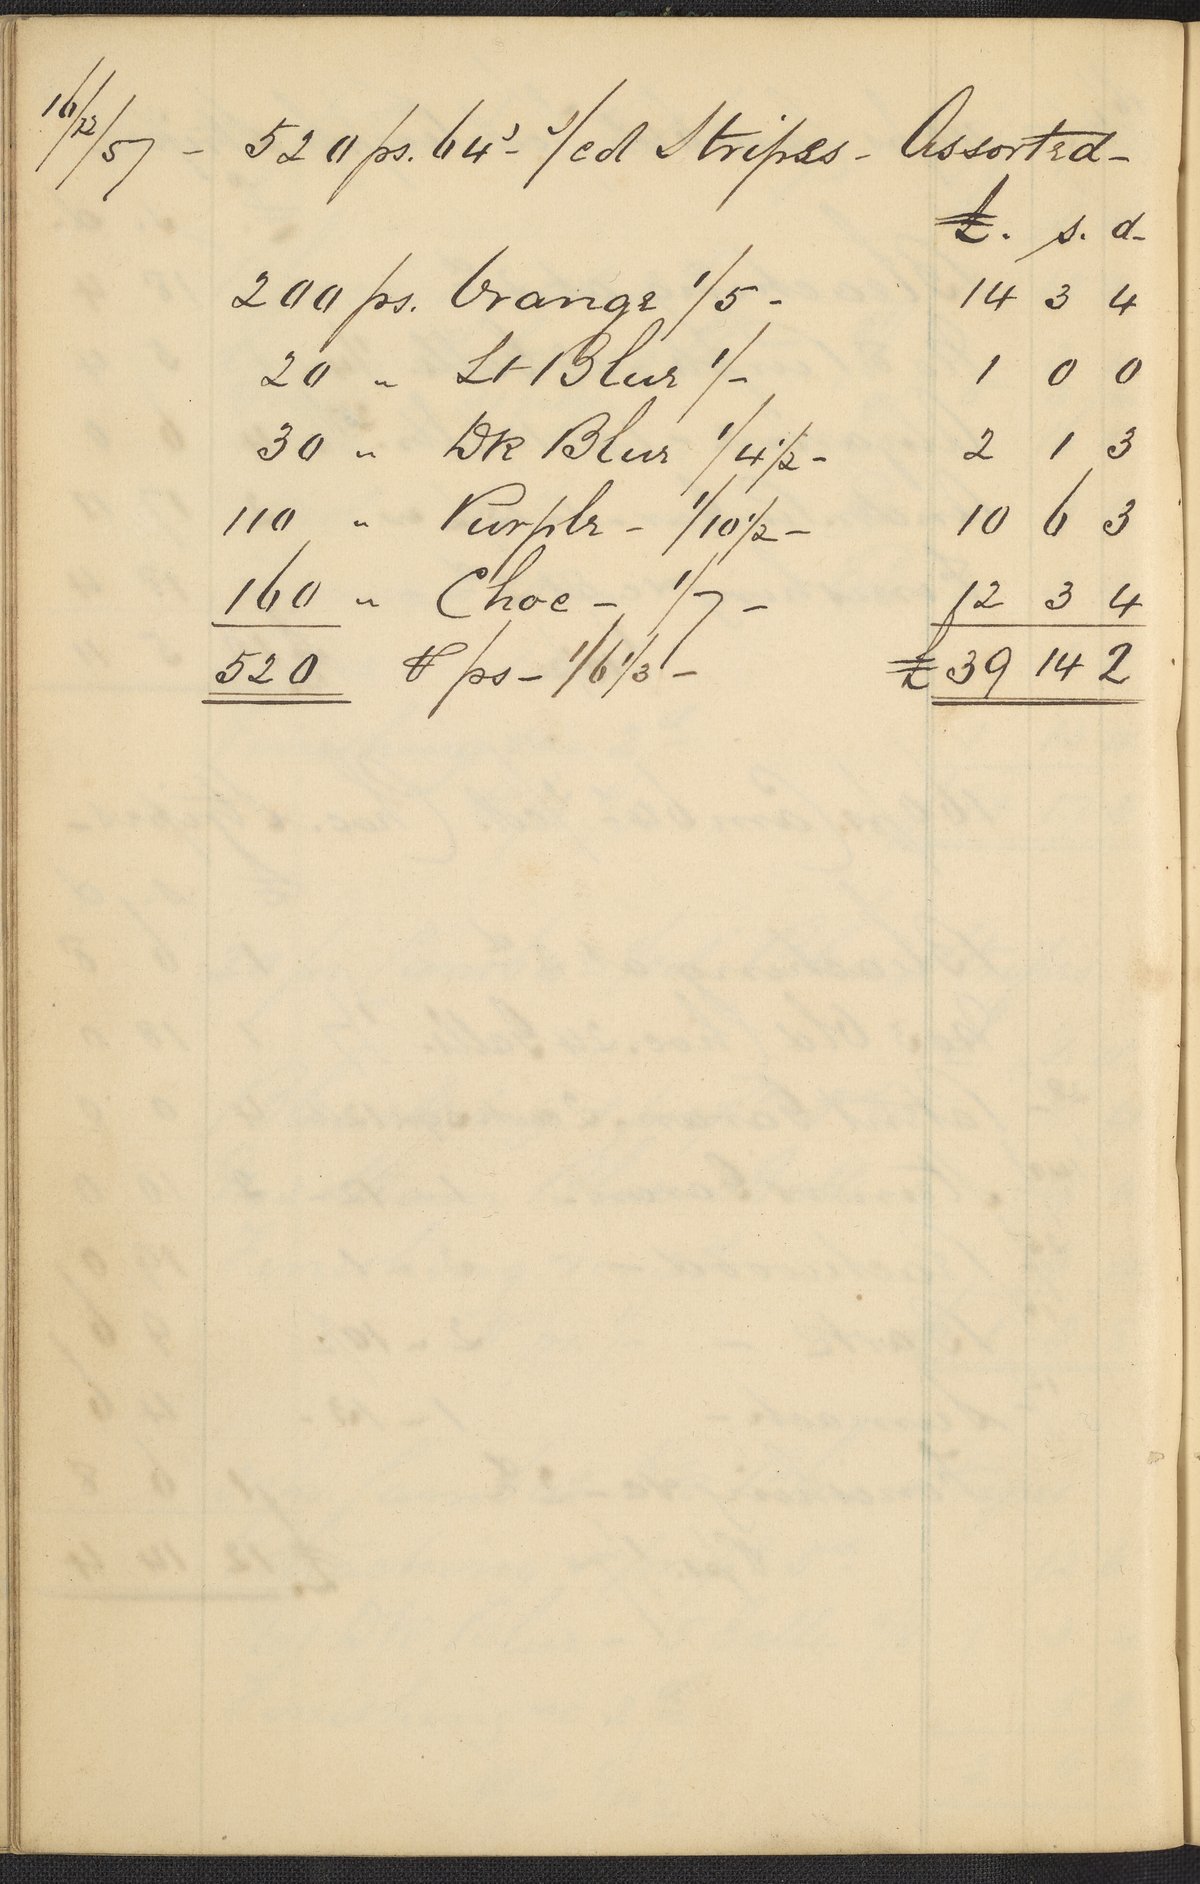 16/12/57 - 520 ps. 64s - 3/cd Stripes - Assorted -
£. s. d -
200 ps. Orange 1/5 - 14 3 4
20 " Lt Blue 1/- 1 0 0
30 " Dk Blue 1/4 1/2 - 2 1 3
110 " Purple - 1/10 1/2 - 10 6 3
160 " Choc - 1/7 - 12 3 4
520 ℔ ps - 1/6 1/3 - £ 39 14 2